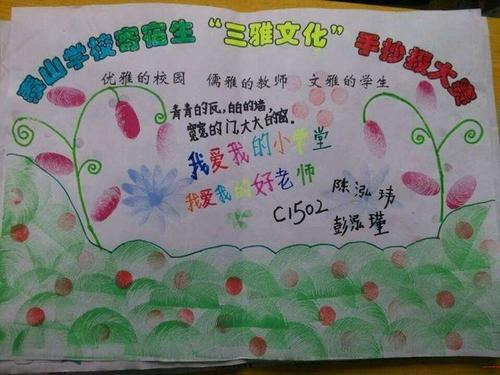 泰山学校寄宿生“三雅文化”手抄报大赛
优雅的校园 儒雅的教师 文雅的学生
青青的瓦,白白的墙,
宽宽的门,大大的窗,
我爱我的小学堂
我爱我的好老师
C1502
陈泓玮
彭泓瑾